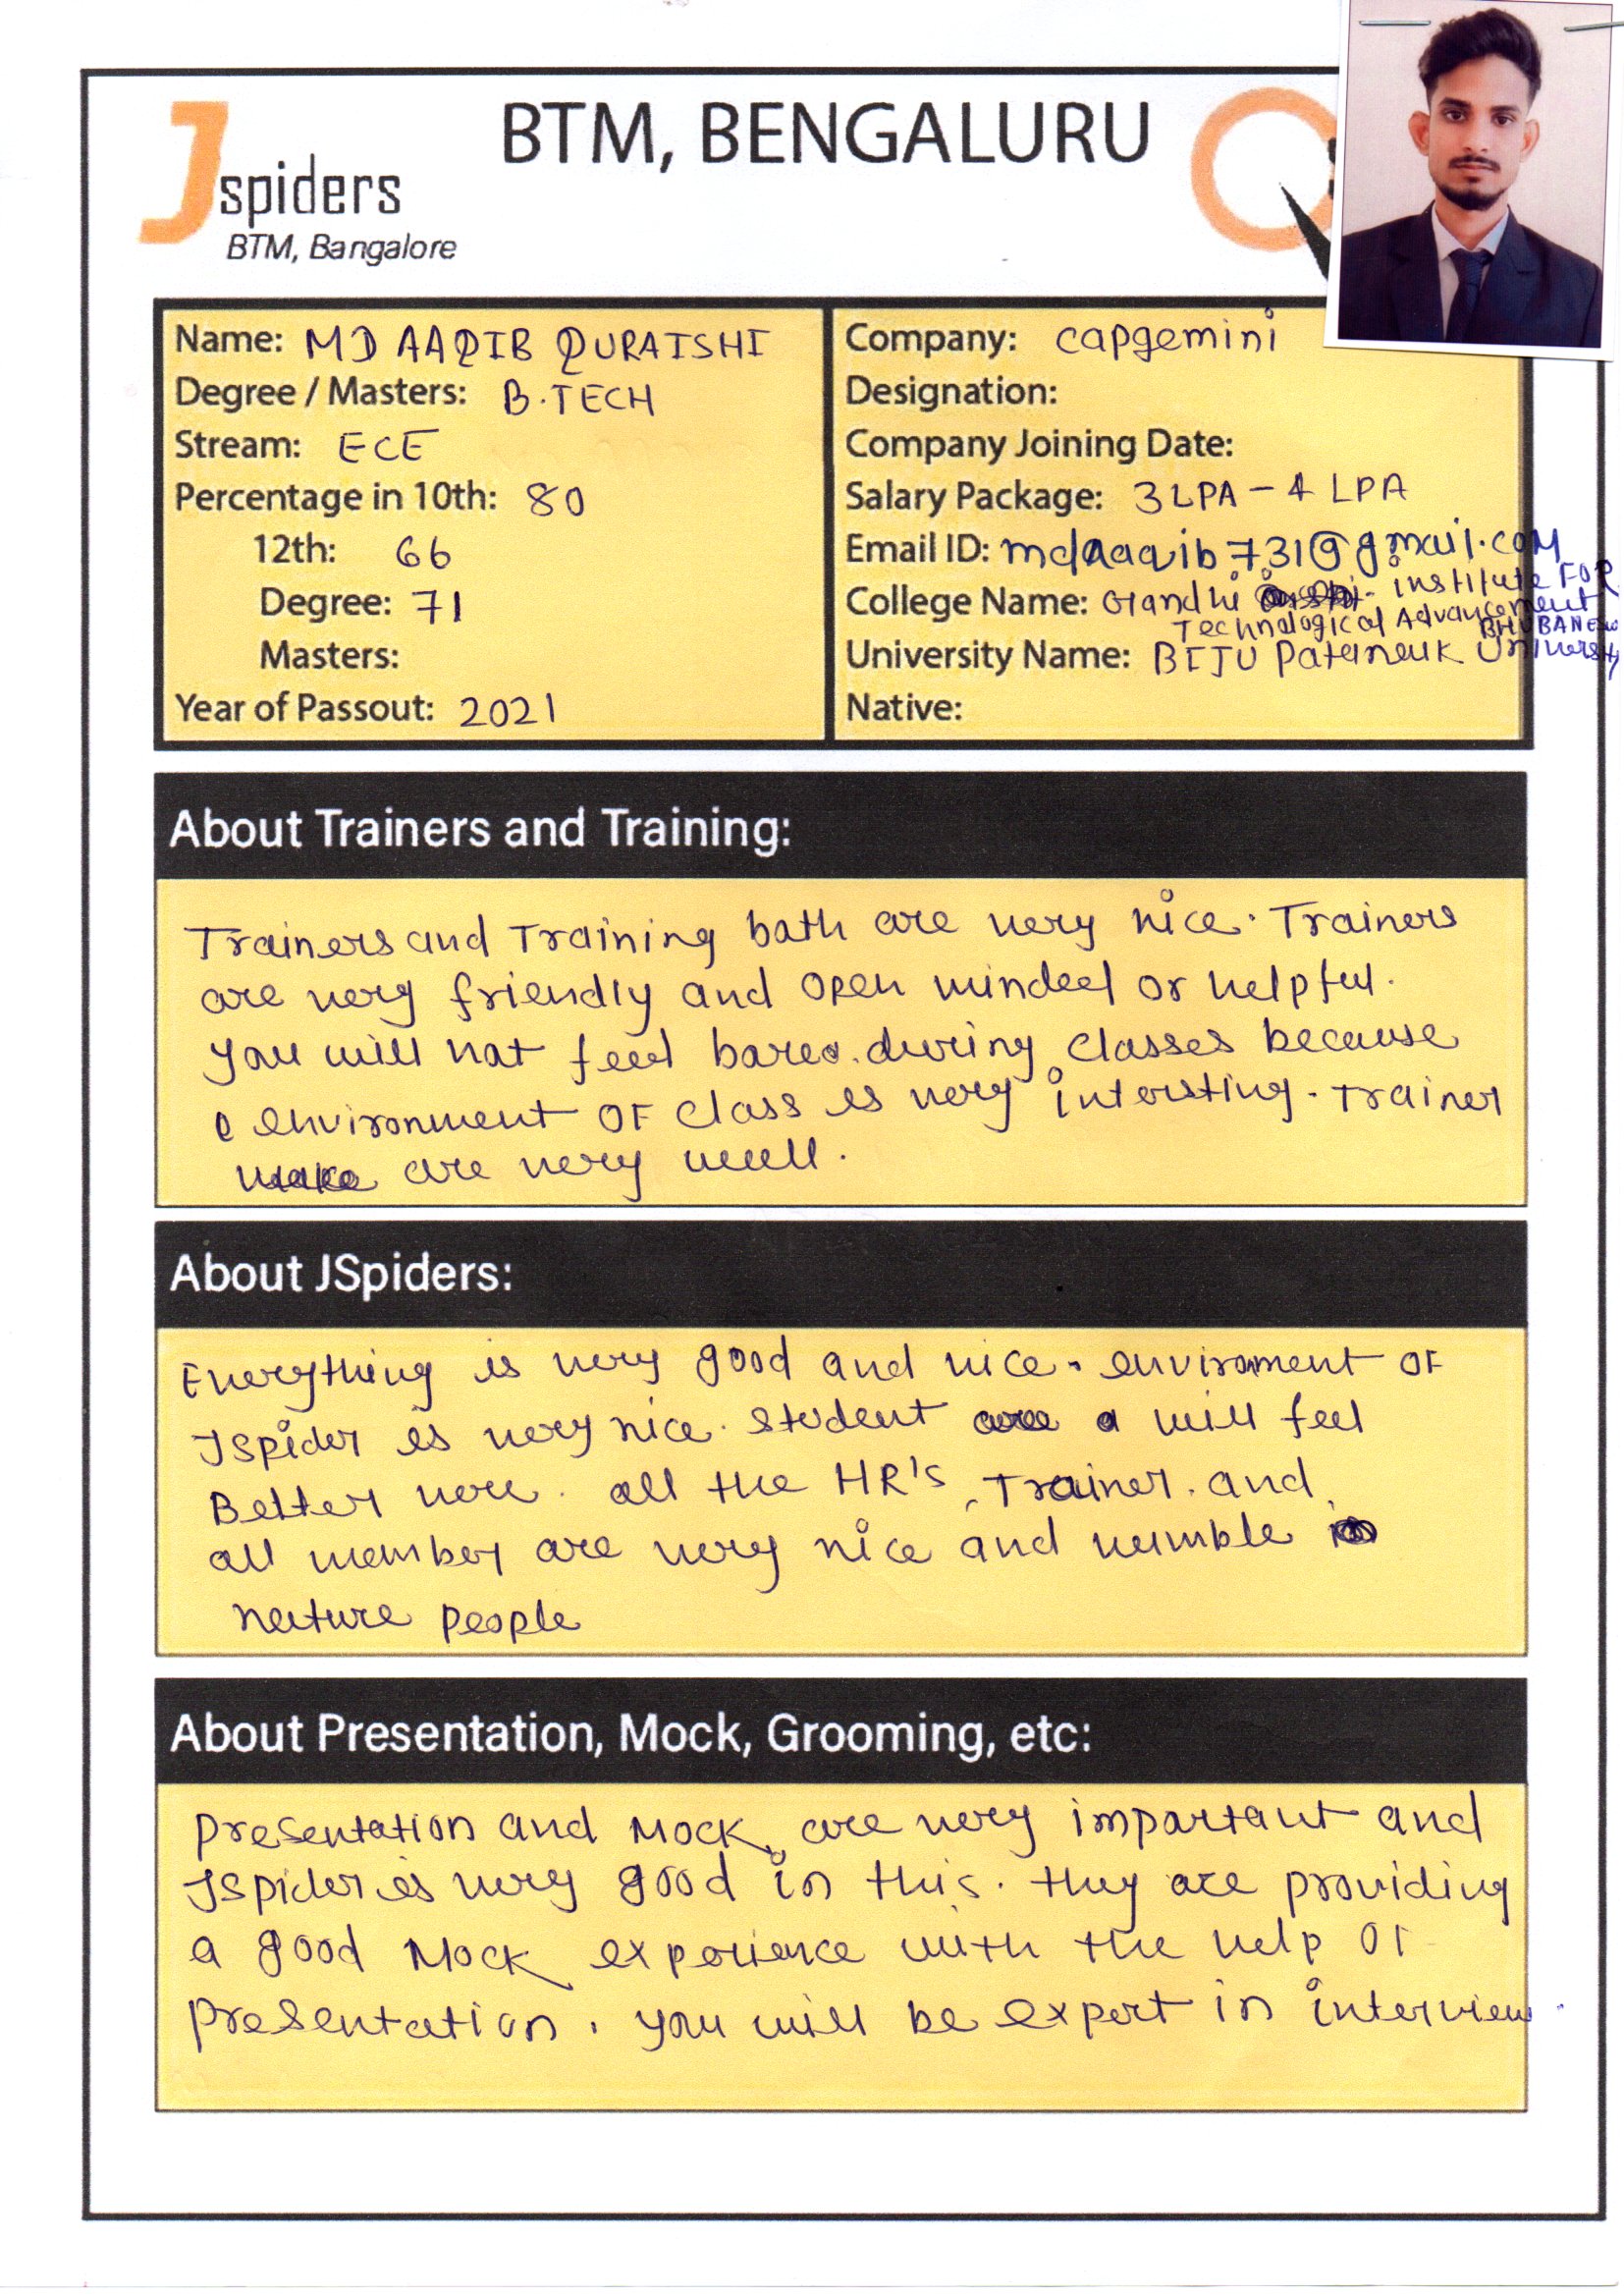 BTM, BENGALURU
Jspiders
BTM, Bangalore
Name: MD AAQIB QURAISHI
Degree / Masters: B.TECH
Stream: ECE
Percentage in 10th: 80
12th: 66
Degree: 71
Masters:
Year of Passout: 2021
Company: capgemini
Designation:
Company Joining Date:
Salary Package: 3 LPA - 4 LPA
Email ID: mdaaqib731@gmail.com
College Name: Gandhi institute FOR
Technological Advancement
BHUBANESW
University Name: BIJU Patanaik University
Native:
About Trainers and Training:
Trainers and Training bath are very nice. Trainers
are very friendly and open minded or helpful.
you will nat feel bared during classes because
environment OF class is very intersting. Trainer
are very well.
About JSpiders:
Everything is very good and nice. enviroment OF
Jspider is very nice. student will feel
Better here. all the HR's, Trainer. and
all member are very nice and humble
nature people
About Presentation, Mock, Grooming, etc:
presentation and Mock are very impartant and
Jspider is very good in this. they are providing
a good Mock experience with the help of
presentation. you will be expert in interview.